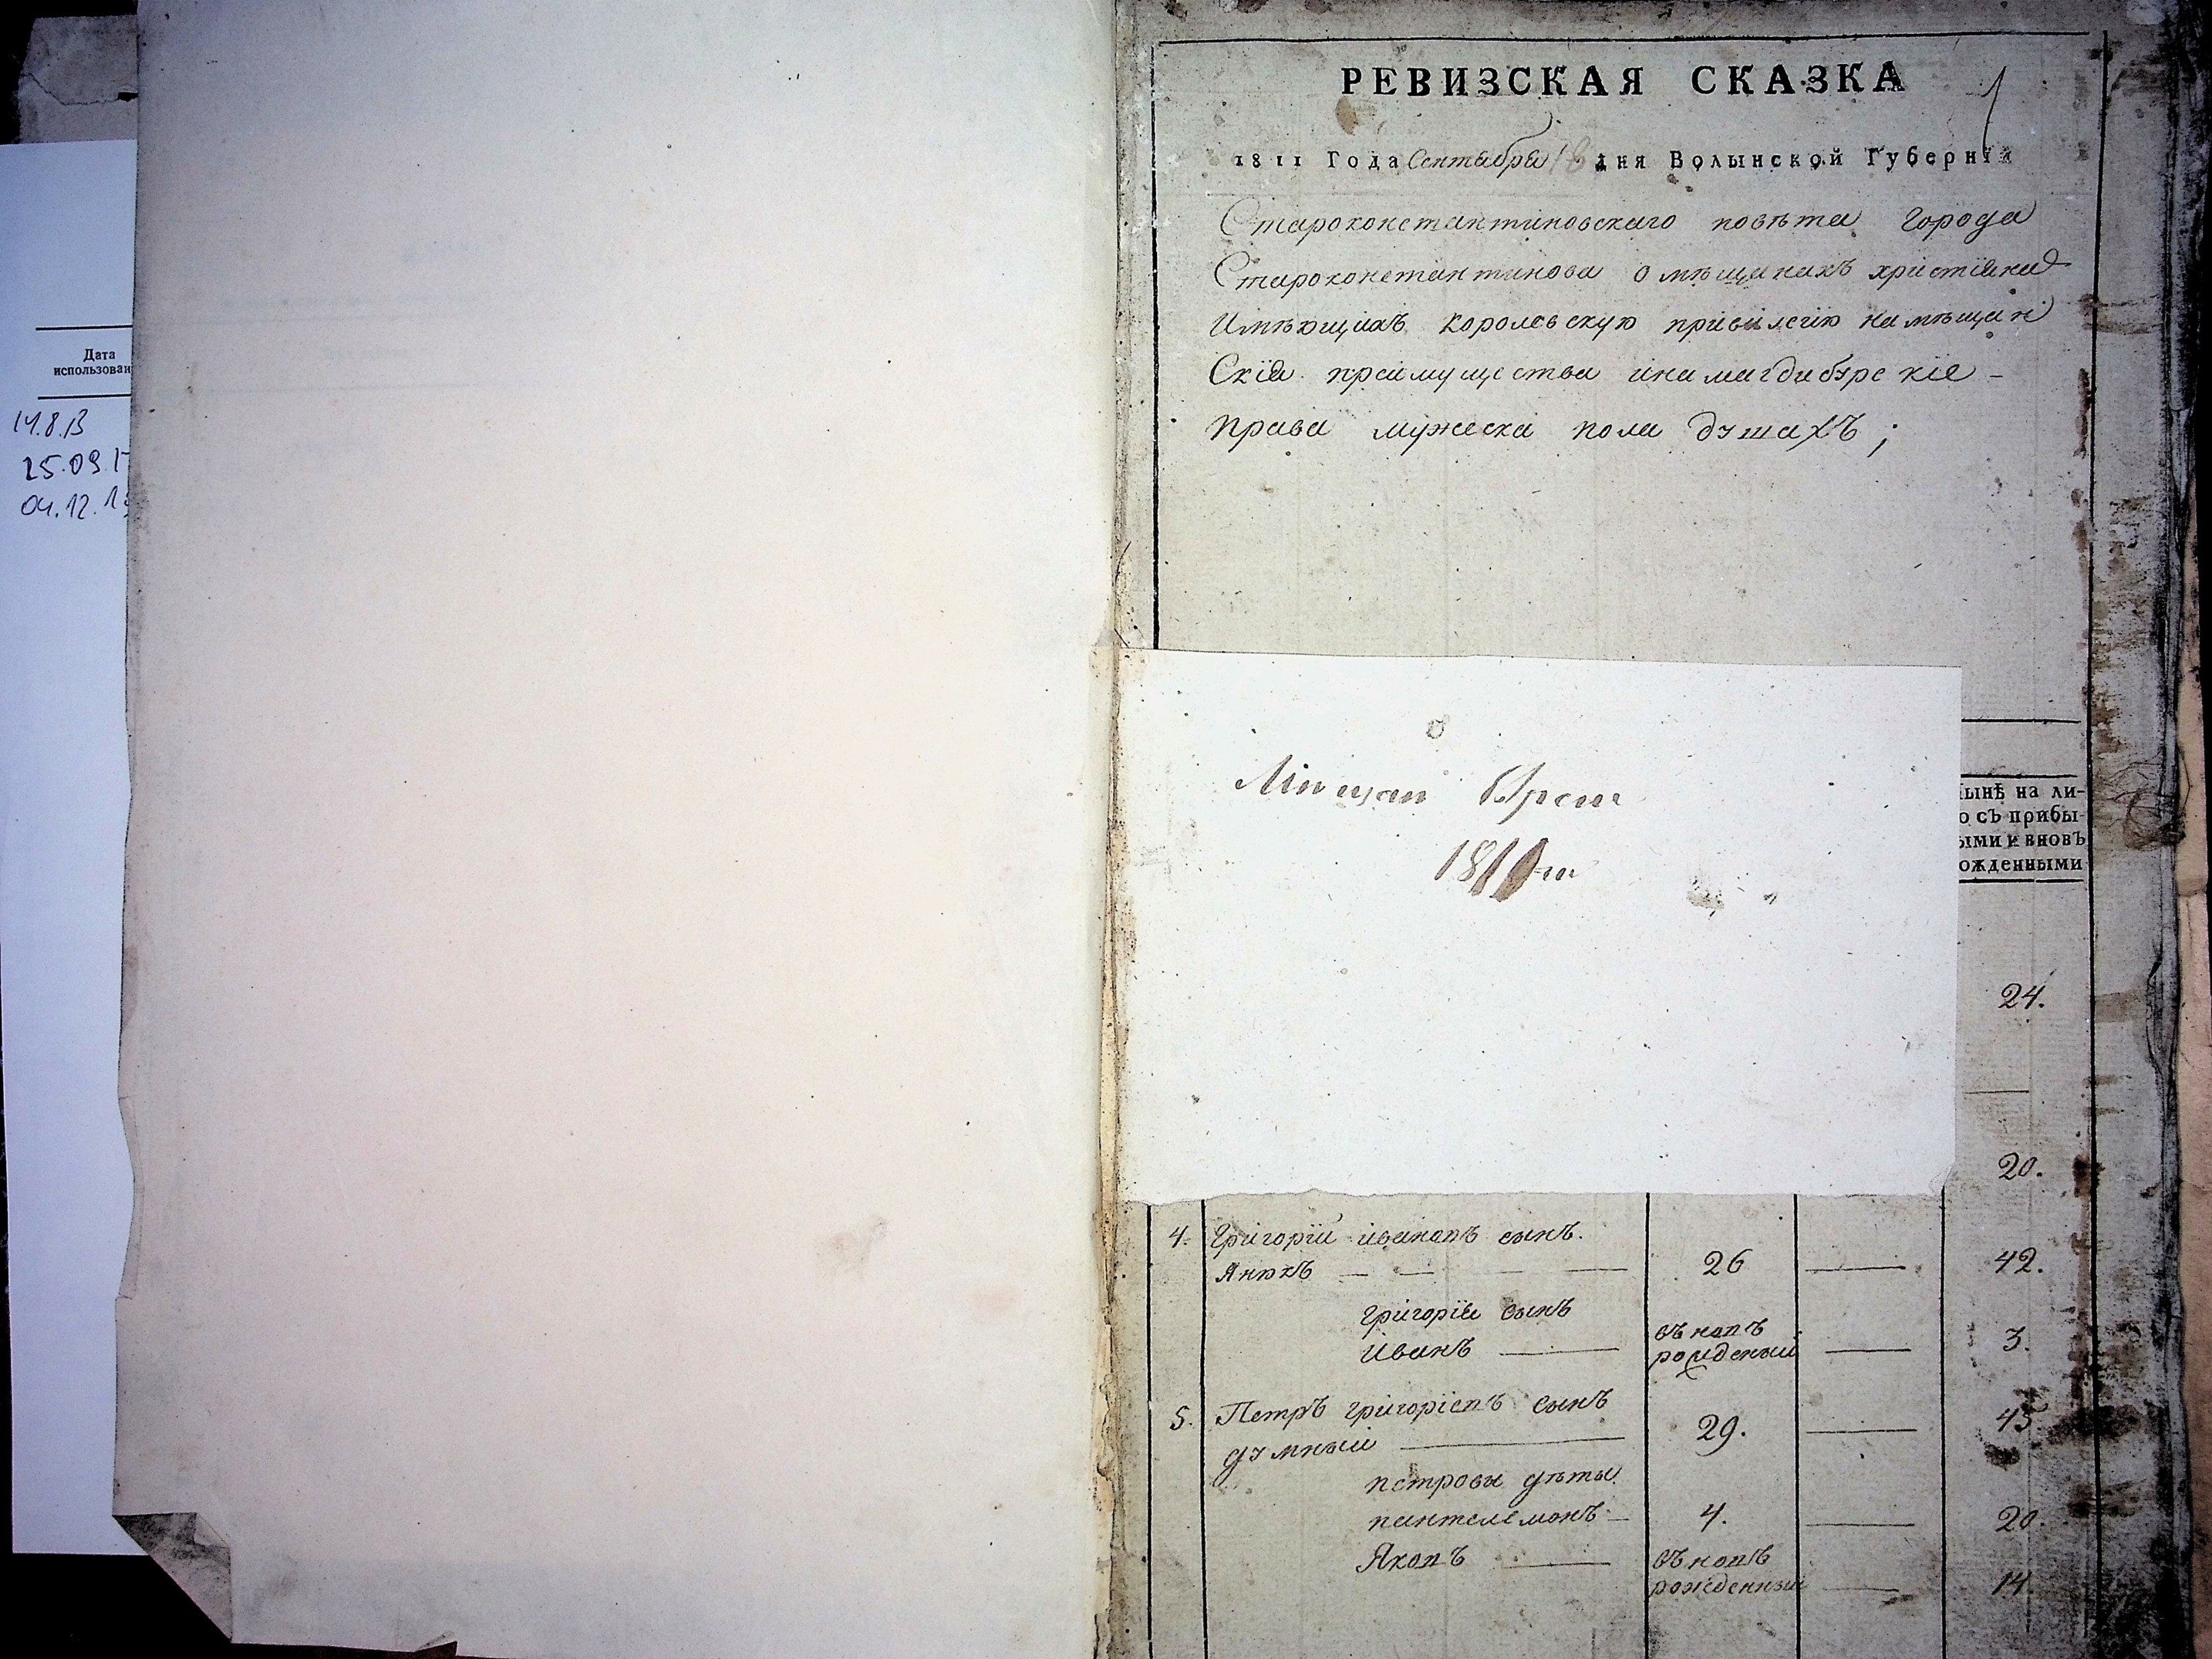 Дата
использован
14.8.13
25.09.1
04.12.1
РЕВИЗСКАЯ СКАЗКА
1
1811 Года Сентября дня Волынской Губерніи
Староконстантиновскаго повѣта города
Староконстантинова о мѣщанахъ христіяна
Имѣющихъ королевскую привилегію на мѣщан
Скія преимущества и на магдибурскіе -
права мужеска пола душахъ ;
Мѣщан
181
ынѣ на ли-
о съ прибы-
ыми и вновь
ожденными
24.
20.
4. Григорій ивановъ сынъ.
Янюкъ — — — — 26 — 42.
григорія сынъ
иванъ — въновъ рожденый — 3.
5. Петръ григоріевъ сынъ
думный — 29. — 45.
петровы дѣты
пантелемонъ — 4. — 20.
Яковъ — въновъ рожденный — 14.